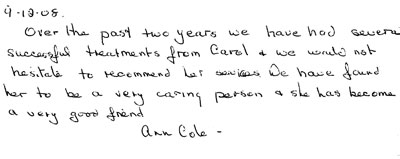 9-12-08.
Over the past two years we have had severa
successful treatments from Carol & we would not
hesitate to recommend her services We have found
her to be a very caring person & she has become
a very good friend
Ann Cole -